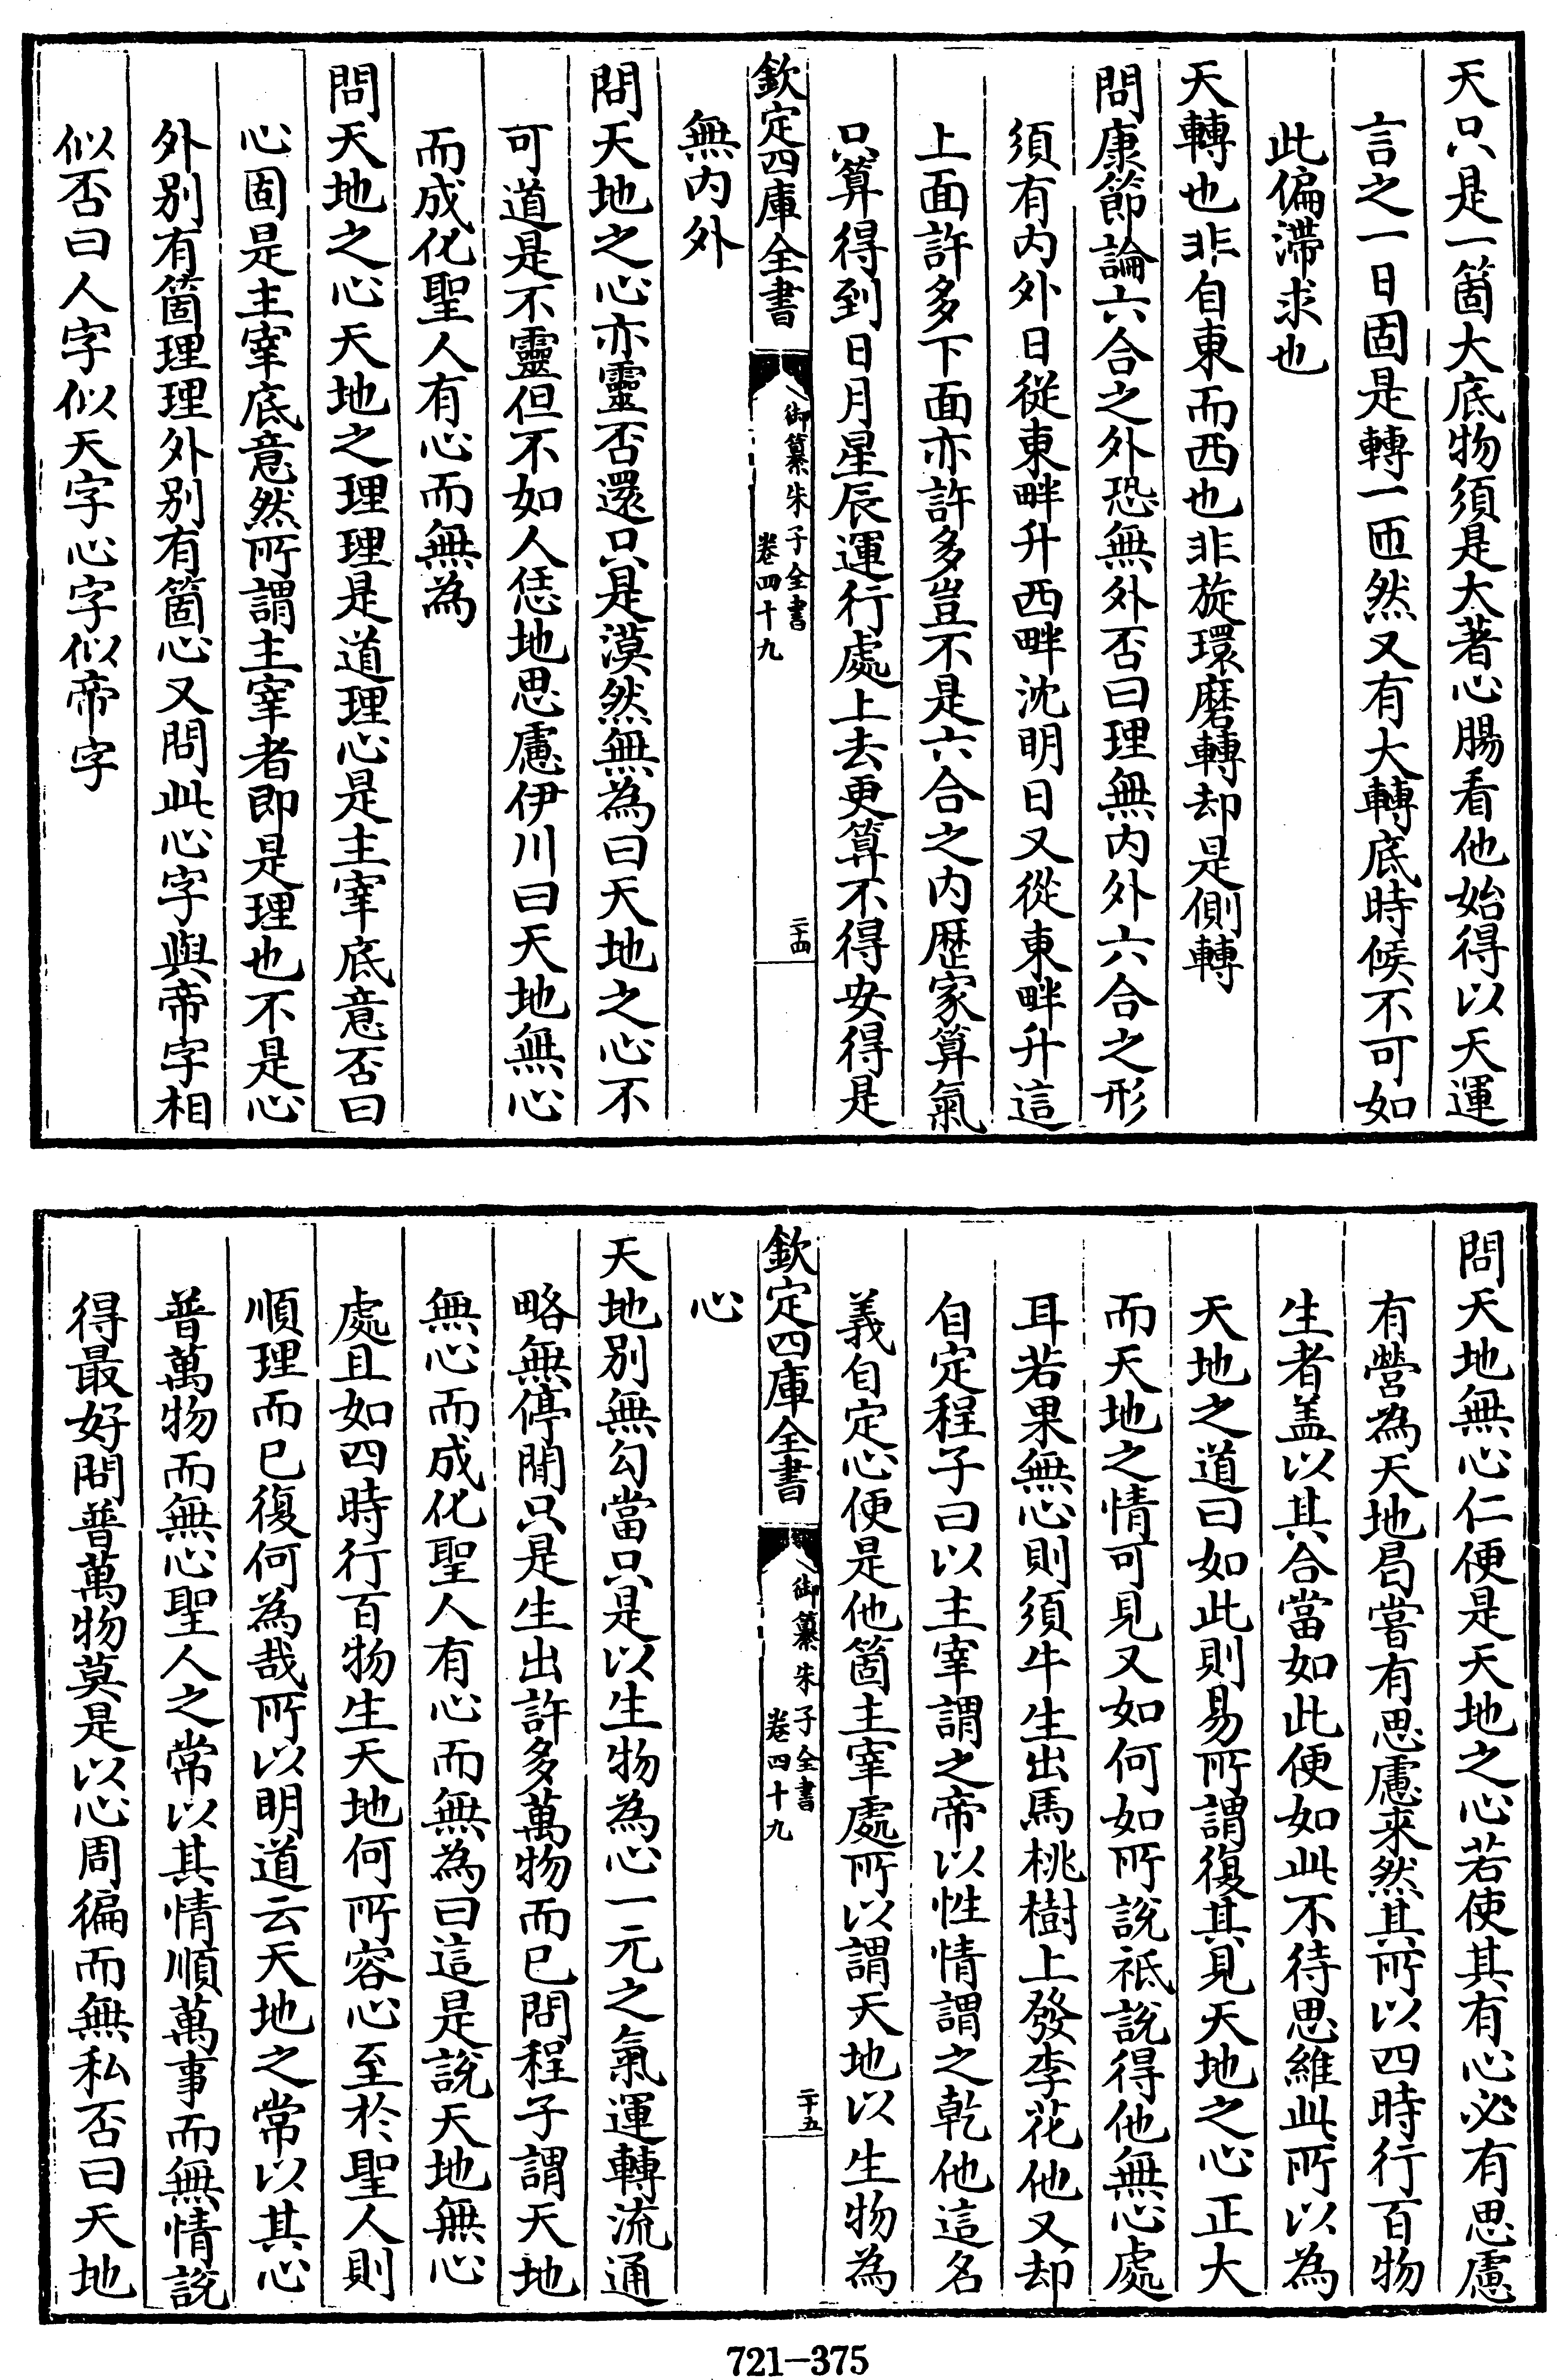 天只是一箇大底物須是大著心腸看他始得以天運
言之一日固是轉一匝然又有大轉底時候不可如
此偏滯求也
天轉也非自東而西也非旋環磨轉却是側轉
問康節論六合之外恐無外否曰理無内外六合之形
須有内外日從東畔升西畔沈明日又從東畔升這
上面許多下面亦許多豈不是六合之内歴家算氣
只算得到日月星辰運行處上去更算不得安得是
欽定四庫全書
御纂朱子全書
卷四十九
二十四
無内外
問天地之心亦靈否還只是漠然無為曰天地之心不
可道是不靈但不如人恁地思慮伊川曰天地無心
而成化聖人有心而無為
問天地之心天地之理理是道理心是主宰底意否曰
心固是主宰底意然所謂主宰者即是理也不是心
外別有箇理理外別有箇心又問此心字與帝字相
似否曰人字似天字心字似帝字
問天地無心仁便是天地之心若使其有心必有思慮
有營為天地曷嘗有思慮来然其所以四時行百物
生者盖以其合當如此便如此不待思維此所以為
天地之道曰如此則易所謂復其見天地之心正大
而天地之情可見又如何如所說祗說得他無心處
耳若果無心則須牛生出馬桃樹上發李花他又却
自定程子曰以主宰謂之帝以性情謂之乾他這名
義自定心便是他箇主宰處所以謂天地以生物為
欽定四庫全書
御纂朱子全書
卷四十九
二十五
心
天地別無勾當只是以生物為心一元之氣運轉流通
略無停間只是生出許多萬物而已問程子謂天地
無心而成化聖人有心而無為曰這是說天地無心
處且如四時行百物生天地何所容心至於聖人則
順理而已復何為哉所以明道云天地之常以其心
普萬物而無心聖人之常以其情順萬事而無情說
得最好問普萬物莫是以心周徧而無私否曰天地
721-375